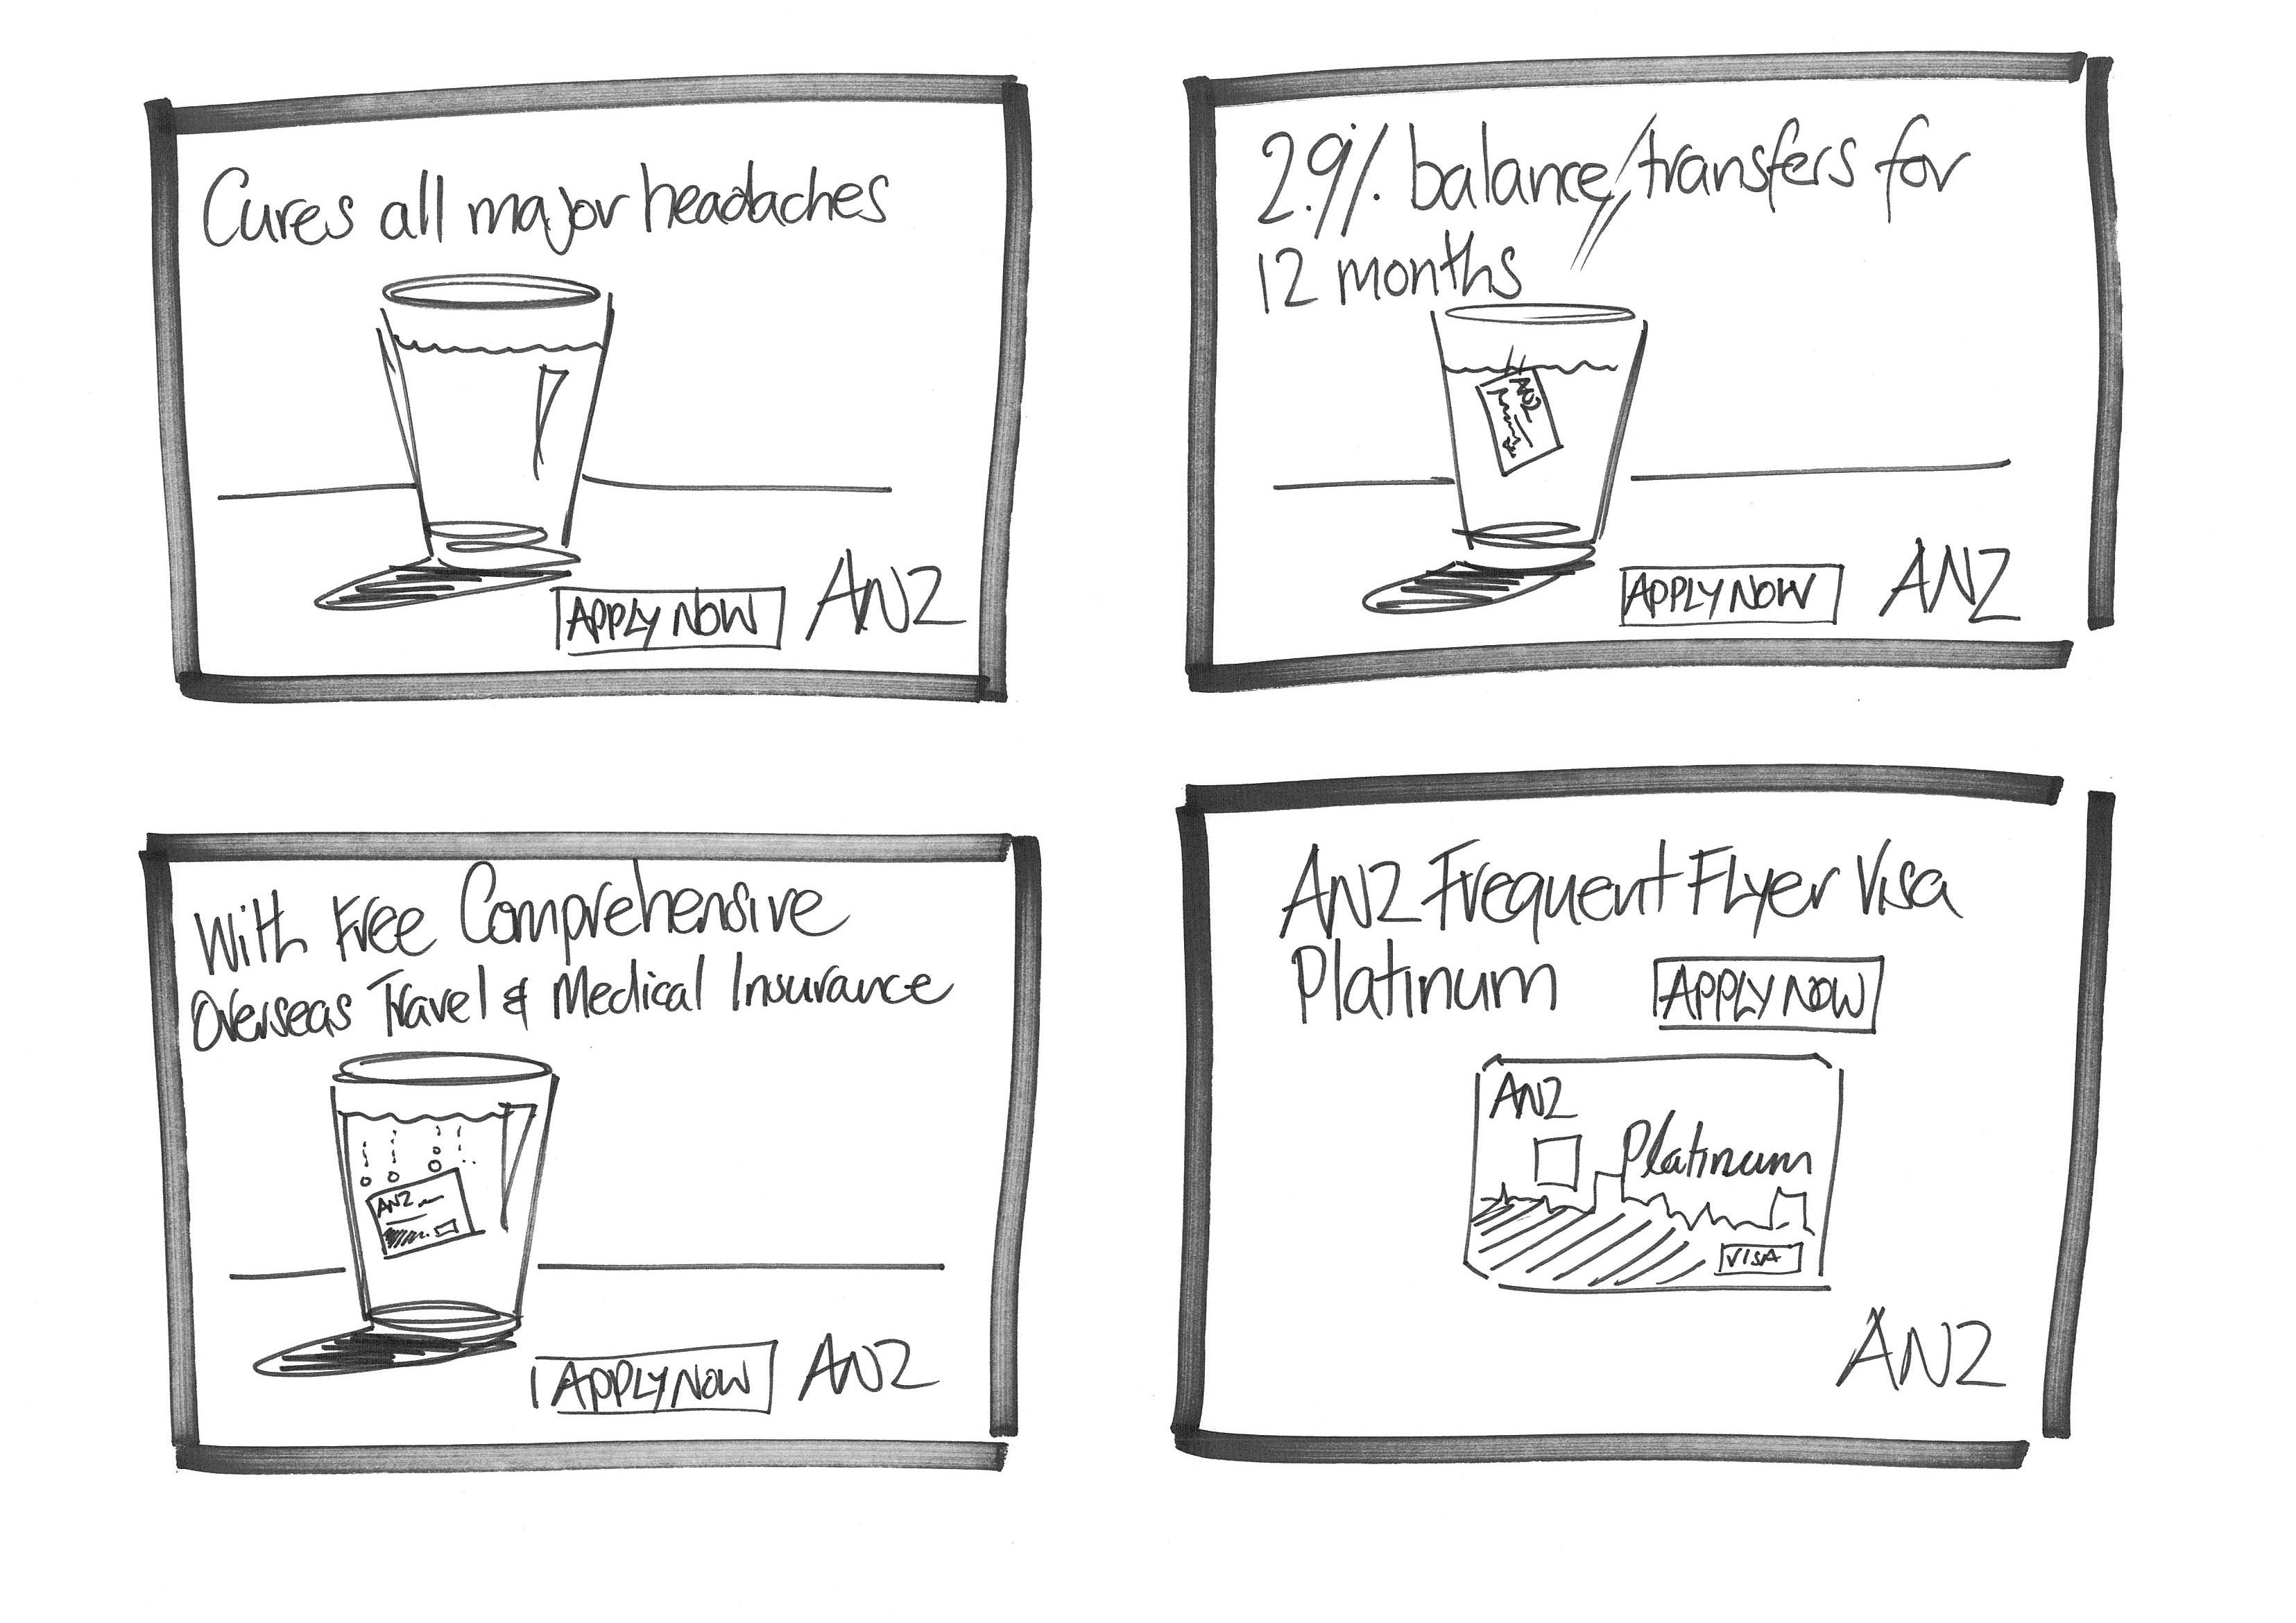 Cures all major headaches
APPLY NOW ANZ
2.9% balance transfers for
12 months
ANZ
APPLY NOW ANZ
With Free Comprehensive
Overseas Travel & Medical Insurance
ANZ
APPLY NOW ANZ
ANZ Frequent Flyer Visa
Platinum APPLY NOW
ANZ
Platinum
VISA
ANZ